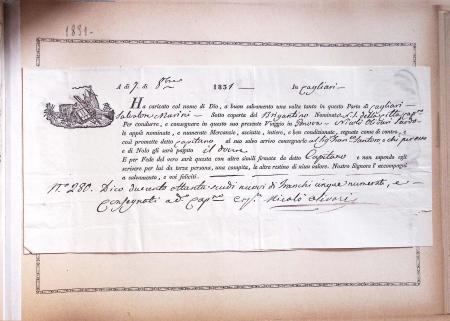 1831.
A dì 7. di 8bre 1831 In Cagliari
Ha caricato col nome di Dio, a buon salvamento una volta tanto in questo Porto di Cagliari
Salvatore Marini Sotto coperta del Brigantino Nominato
Per condurre, e consegnare in questo suo presente Viaggio in Genova Nicolò Olivari
le appiè nominate, e numerate Mercanzie, asciutte, intiere, e ben condizionate, segnate come di contro, e
così promette detto Capitano al suo salvo arrivo consegnarle al Sig. Fran. o chi per esso
e di Nolo gli sarà pagato il dovere
E per Fede del vero sarà questa con altre simili firmata da detto Capitano e non sapendo egli
scrivere per lui da terza persona, una compita, le altre restino di niun valore. Nostro Signore l'accompagni
a salvamento, e noi feliciti.
N° 280. Dico duecento ottanta scudi nuovi di Franchi cinque numerati, e
consegnati ad. Capne Nicolò Olivari